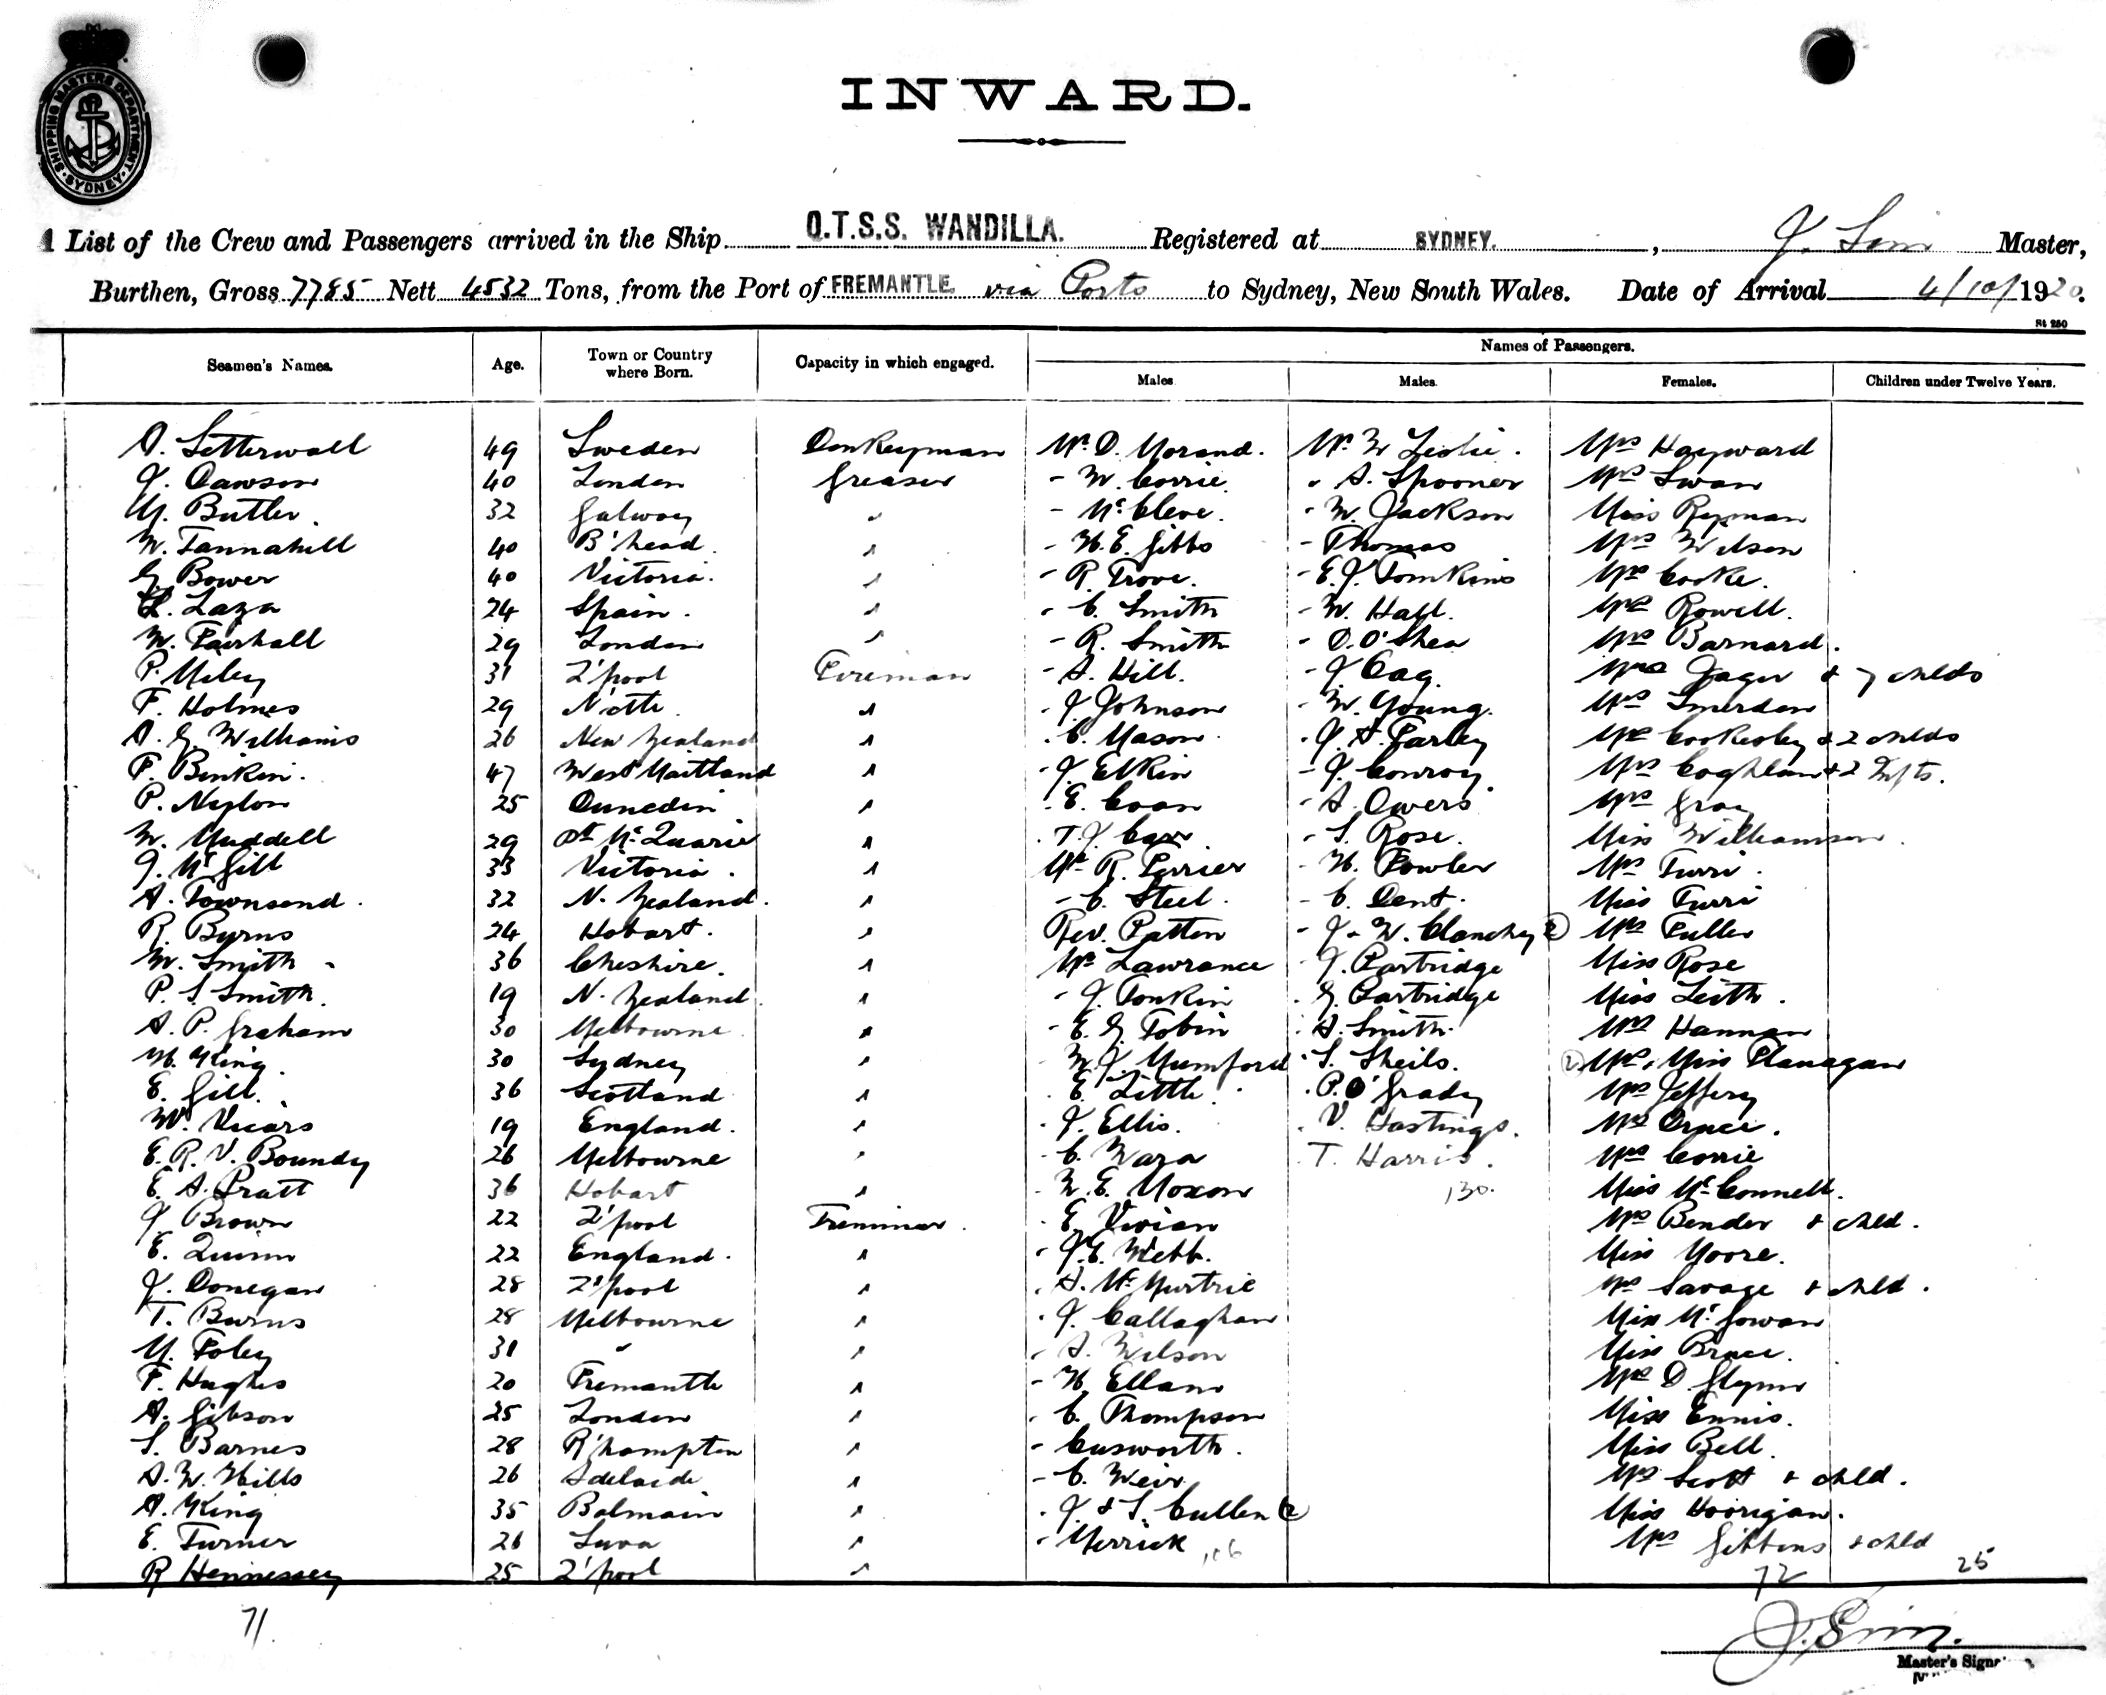 SHIPPING MASTERS DEPARTMENT SYDNEY
INWARD.
A List of the Crew and Passengers arrived in the Ship Q.T.S.S. WANDILLA. Registered at SYDNEY, J. Sim Master,
Burthen, Gross 7785 Nett 4532 Tons, from the Port of FREMANTLE via Ports to Sydney, New South Wales. Date of Arrival 4/10/1920.
St 250
Seamen's Names. Age. Town or Country where Born. Capacity in which engaged. Names of Passengers.
Males Males Females. Children under Twelve Years.
A. Setterwall 49 Sweden Donkeyman Mr. D. Morand. Mr. W Leslie. Mrs Hayward
J. Dawson 40 London Greaser - W. Corrie. " A. Spooner Mrs Swan
M. Butler. 32 Galway " - McCleve. - W. Jackson Miss Ryman
W. Tannahill 40 B'head. " - H. E. Gibbs - Thomas Mrs Wilson
G Bower 40 Victoria. " - R. Trove. - E. J. Tomkins Mrs Cooke.
L. Laza 24 Spain. " - C. Smith - W. Hall. Mrs Rowell.
W. Fairhall 29 London " - R. Smith - D. O'Shea Mrs Barnard.
P. Miley 31 L'pool Fireman - A. Hill. - J Cag. Mrs Jager & 7 childs
F. Holmes 29 N'ctle " - J Johnson - W. Young. Mrs Smerdon
A. G. Williams 26 New Zealand " - C. Mason. - J. A. Farley Mrs Cookesley & 2 childs
F. Binkin. 47 West Maitland " - J. Elkin - J. Conroy Mrs Coghlan & 2 Infts.
P. Nylon 25 Dunedin " - E. Coan - A. Owers Mrs Gray
W. Muddell 29 Pt McQuarie " - T. J Carr - S. Rose. Miss Williamson.
J. McGill 33 Victoria. " Mr R. Perrier - H. Fowler Mrs Turri.
A. Townsend. 32 N. Zealand. " - C. Steel. - C. Dent. Miss Turri
R. Byrns 24 Hobart. " Rev. Patten - J. W. Clanchy (2) Mrs Fuller
W. Smith - 36 Cheshire. " Mr Lawrance - J. Partridge Miss Rose
P. S. Smith. 19 N. Zealand. " - J. Tonkin - G. Partridge Miss Leith.
A. P. Graham 30 Melbourne " - E. G. Tobin - A. Smith. Mrs Hannan
H. King. 30 Sydney " W. J. Mumford - S. Sheils. (2) Mrs, Miss Flanagan
E. Gill. 36 Scotland " - E. Little. - P. O'Grady Mrs Jeffery
W. Vicars 19 England. " - J. Ellis. - V. Hastings. Mrs Druce.
E. R. V. Boundy 26 Melbourne " - C. Wara - T. Harris. Mrs Corrie
E. A. Pratt 36 Hobart " - W. E. Moxon 130. Miss McConnell.
J Brown 22 L'pool Trimmer. - E. Vivian Mrs Bender & child.
E. Quinn 22 England. " - J. E. Webb. Miss Moore.
J. Donegan 28 L'pool " - A. McMurtrie Mrs Savage & child.
T. Burns 28 Melbourne " - J. Callaghan Miss McGowan
M. Foley 31 " " - A. Wilson Miss Bruce.
F. Hughes 20 Fremantle " - H Ellam Mrs D. Glynn
A. Gibson 25 London " - C. Thompson Miss Ennis.
S. Barnes 28 R'hampton " - Cusworth. Miss Bell.
A. W. Hills 26 Adelaide " - C. Weir Mrs Scott & child.
A. King 35 Balmain " - J. & S. Cullen (2) Miss Hoorigan.
E. Turner 26 Suva " - Merrick 106 Mrs Gibbons & child
R Hennessey 25 L'pool " 72 25
71.
J. Sim.
Master's